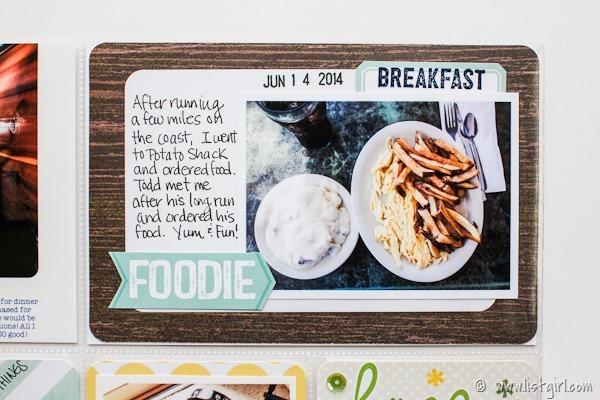 JUN 14 2014
BREAKFAST
After running
a few miles on
the coast, I went
to Potato Shack
and ordered food.
Todd met me
after his long run
and ordered his
food. Yum & Fun!
FOODIE
for dinner
ased for
e would be
uions! All I
SO good!
THINGS
© www.listgirl.com